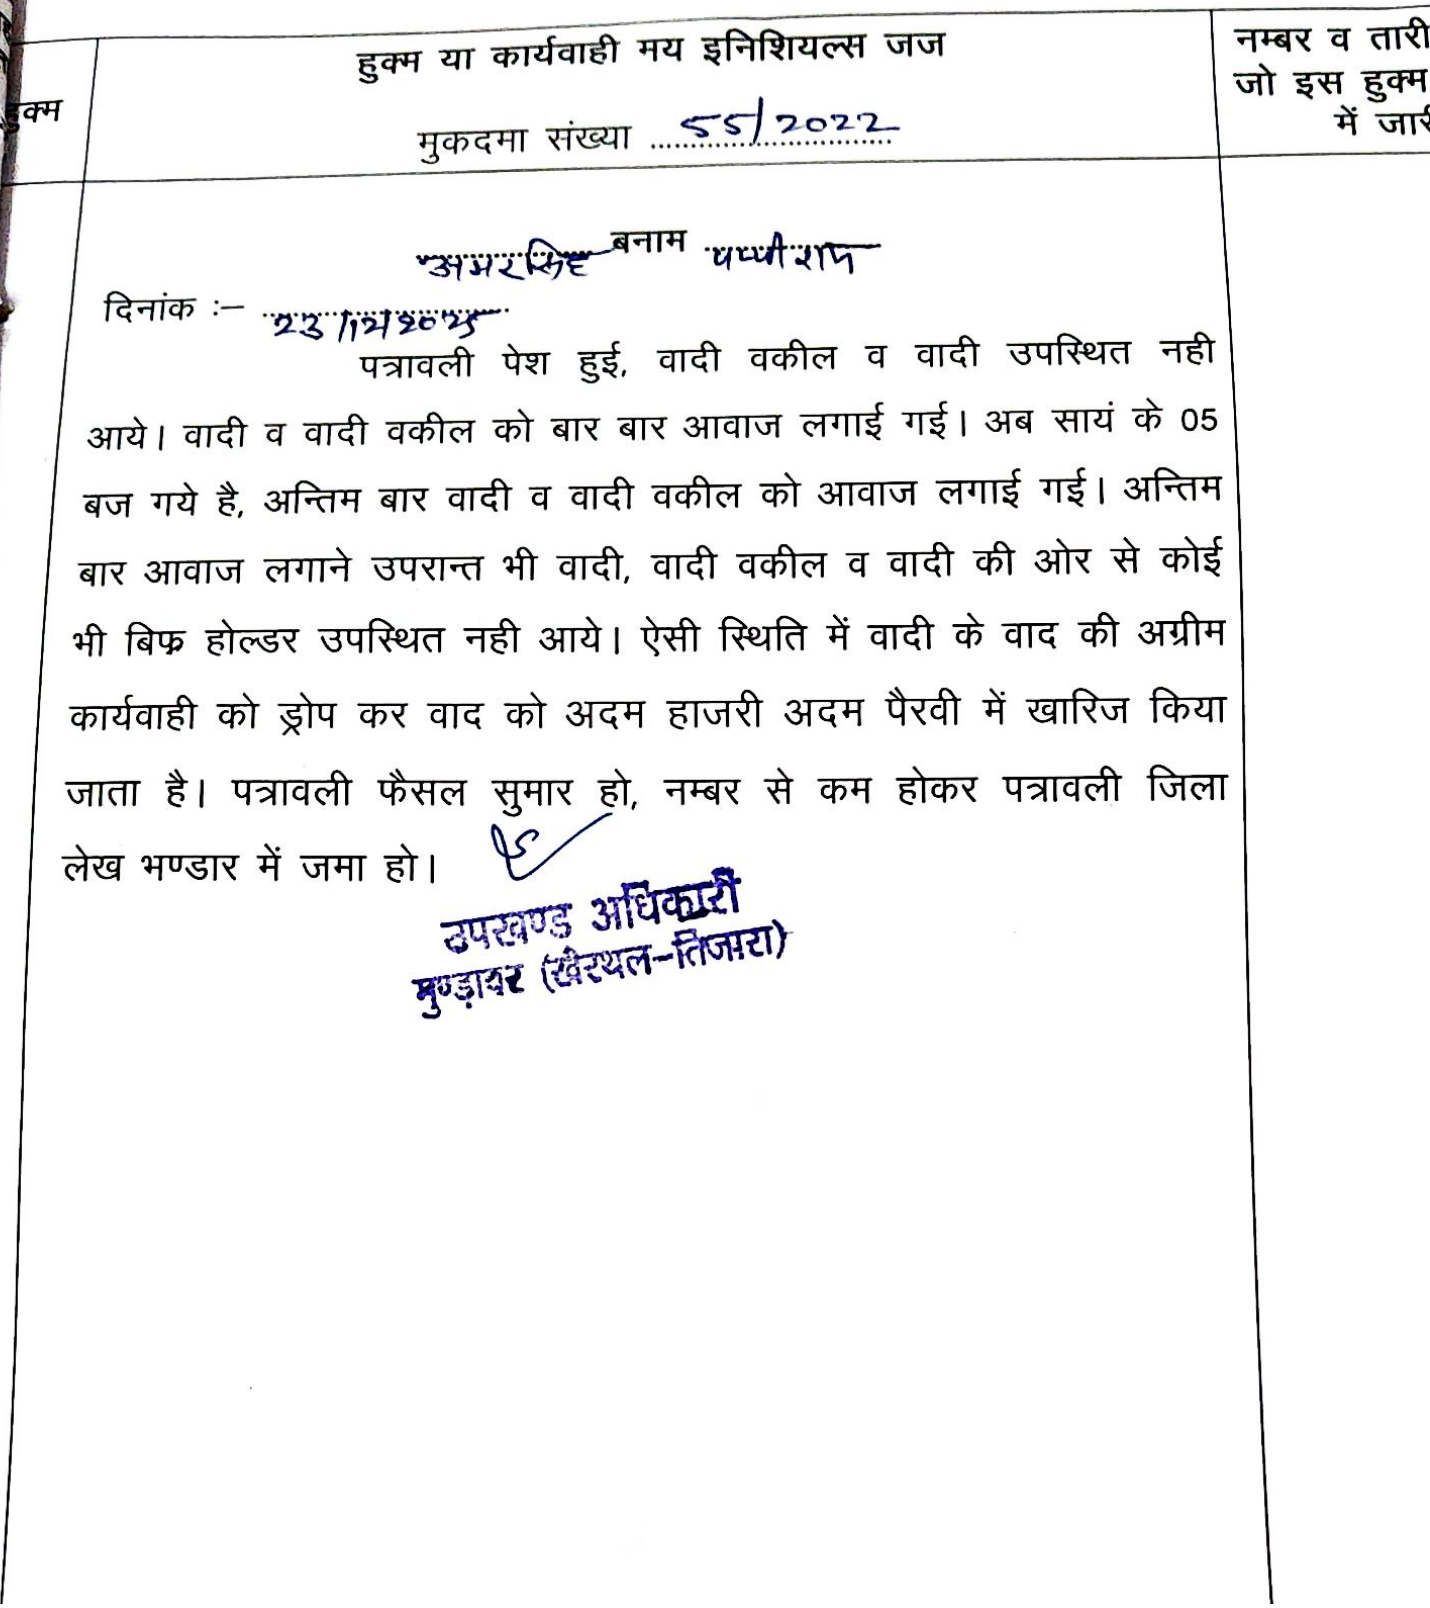 हुक्म
हुक्म या कार्यवाही मय इनिशियल्स जज
मुकदमा संख्या 55/2022
नम्बर व तारी
जो इस हुक्म
में जार
अमरसिंह बनाम पप्पीराम
दिनांक :– 23/12/2025
पत्रावली पेश हुई, वादी वकील व वादी उपस्थित नही
आये। वादी व वादी वकील को बार बार आवाज लगाई गई। अब सायं के 05
बज गये है, अन्तिम बार वादी व वादी वकील को आवाज लगाई गई। अन्तिम
बार आवाज लगाने उपरान्त भी वादी, वादी वकील व वादी की ओर से कोई
भी बिफ्र होल्डर उपस्थित नही आये। ऐसी स्थिति में वादी के वाद की अग्रीम
कार्यवाही को ड्रोप कर वाद को अदम हाजरी अदम पैरवी में खारिज किया
जाता है। पत्रावली फैसल सुमार हो, नम्बर से कम होकर पत्रावली जिला
लेख भण्डार में जमा हो।
उपखण्ड अधिकारी
मुण्ड़ावर (खैरथल–तिजारा)